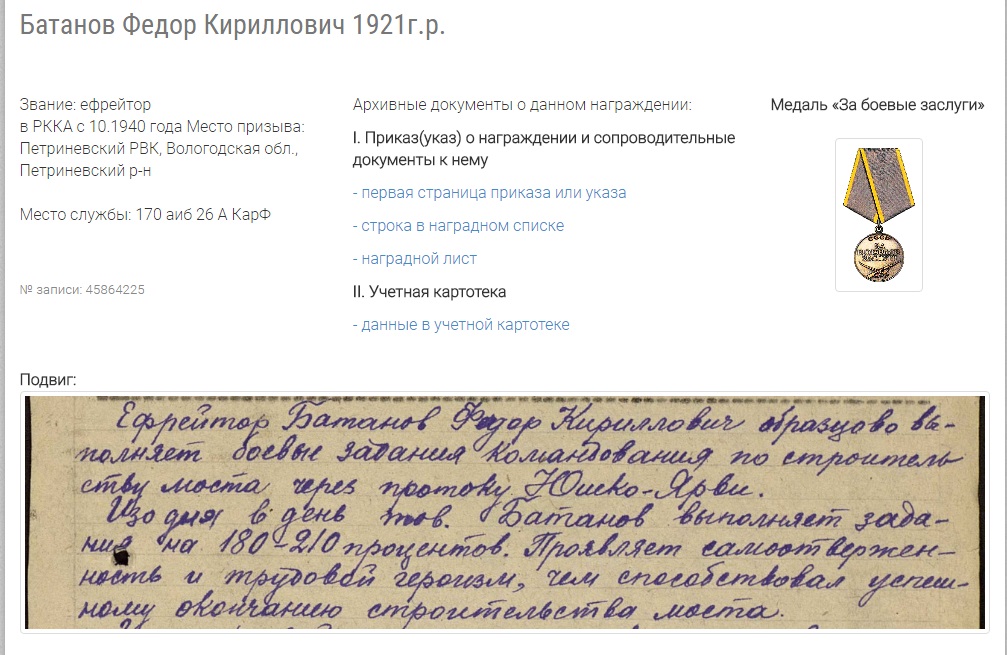 Батанов Федор Кириллович 1921г.р.
Звание: ефрейтор
в РККА с 10.1940 года Место призыва:
Петриневский РВК, Вологодская обл.,
Петриневский р-н
Место службы: 170 аиб 26 А КарФ
№ записи: 45864225
Архивные документы о данном награждении:
I. Приказ(указ) о награждении и сопроводительные
документы к нему
- первая страница приказа или указа
- строка в наградном списке
- наградной лист
II. Учетная картотека
- данные в учетной картотеке
Медаль «За боевые заслуги»
СССР
ЗА
БОЕВЫЕ
ЗАСЛУГИ
Подвиг:
Ефрейтор Батанов Федор Кириллович образцово вы-
полняет боевые задания командования по строитель
ству моста через протоку Юиско-Ярви.
Изо дня в день тов. Батанов выполняет зада-
ния на 180-210 процентов. Проявляет самоотвержен-
ность и трудовой героизм, чем способствовал успеш-
ному окончанию строительства моста.